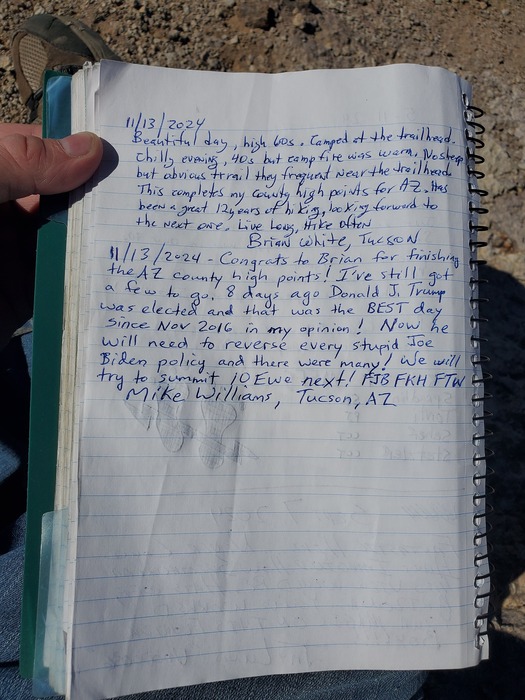 11/13/2024
Beautiful day, high 60s. Camped at the trailhead.
Chilly evening, 40s but campfire was warm. No sheep
but obvious trail they frequent near the trailhead
This completes my county high points for AZ. Has
been a great 12 years of hiking, looking forward to
the next one. Live Long, Hike often
Brian White, Tucson
11/13/2024 - Congrats to Brian for finishing
the AZ county high points! I've still got
a few to go. 8 days ago Donald J. Trump
was elected and that was the BEST day
since Nov 2016 in my opinion! Now he
will need to reverse every stupid Joe
Biden policy and there were many! We will
try to summit 10 Ewe next! FJB FKH FTW
Mike Williams, Tucson, AZ